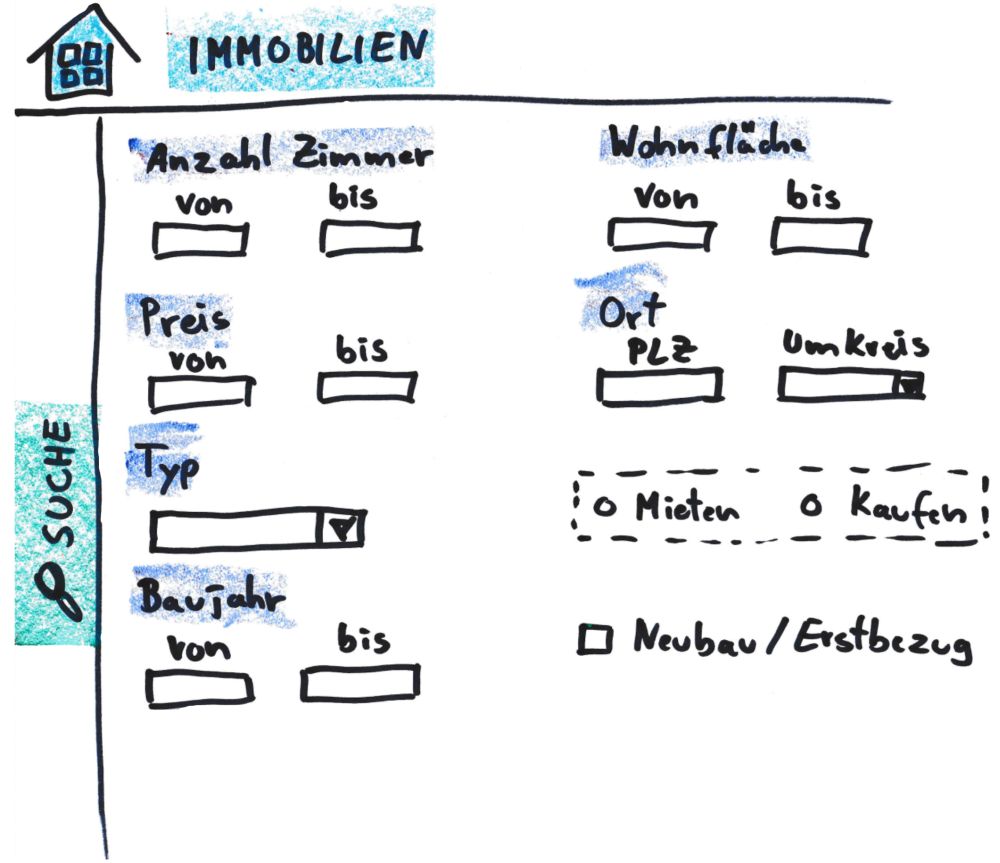 IMMOBILIEN
SUCHE
Anzahl Zimmer
von bis
Preis
von bis
Typ
Baujahr
von bis
Wohnfläche
von bis
Ort
PLZ Umkreis
Mieten Kaufen
Neubau / Erstbezug